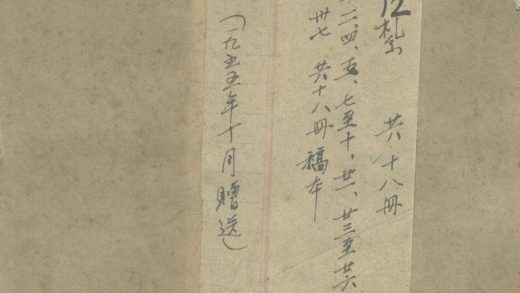 札 共十八冊
二、四、五、七至十、廿一、廿三至廿六
卅七 共十八冊 稿本
（一九五五年十月贈送）